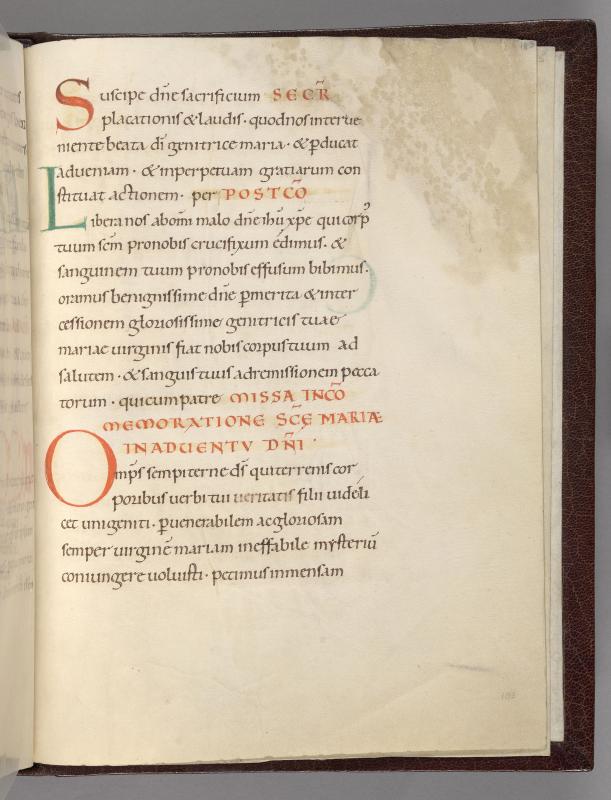 Suscipe dñe sacrificium SECR̄
placationis & laudis· quod nos interue
niente beata dī genitrice maria· & ꝑducat
ad ueniam· & in perpetuam gratiarum con
stituat actionem· per POSTCŌ
Libera nos ab om̄i malo dñe ihū xp̄e qui corp᷒
tuum sc̄m pro nobis crucifixum edimus· &
sanguinem tuum pro nobis effusum bibimus·
oramus benignissime dñe ꝑ merita & inter
cessionem gloriosissime genitricis tuae
mariae uirginis fiat nobis corpus tuum ad
salutem· & sanguis tuus ad remissionem pecca
torum· qui cum patre MISSA IN CŌ
MEMORATIONE SC̄E MARIÆ
IN ADUENTV DÑI·
Omp̄s sempiterne ds̄ qui terrenis cor
poribus uerbi tui ueritatis filii uideli
cet unigeniti· ꝑ uenerabilem ac gloriosam
semper uirginē mariam ineffabile mysteriū
coniungere uoluisti· petimus inmensam